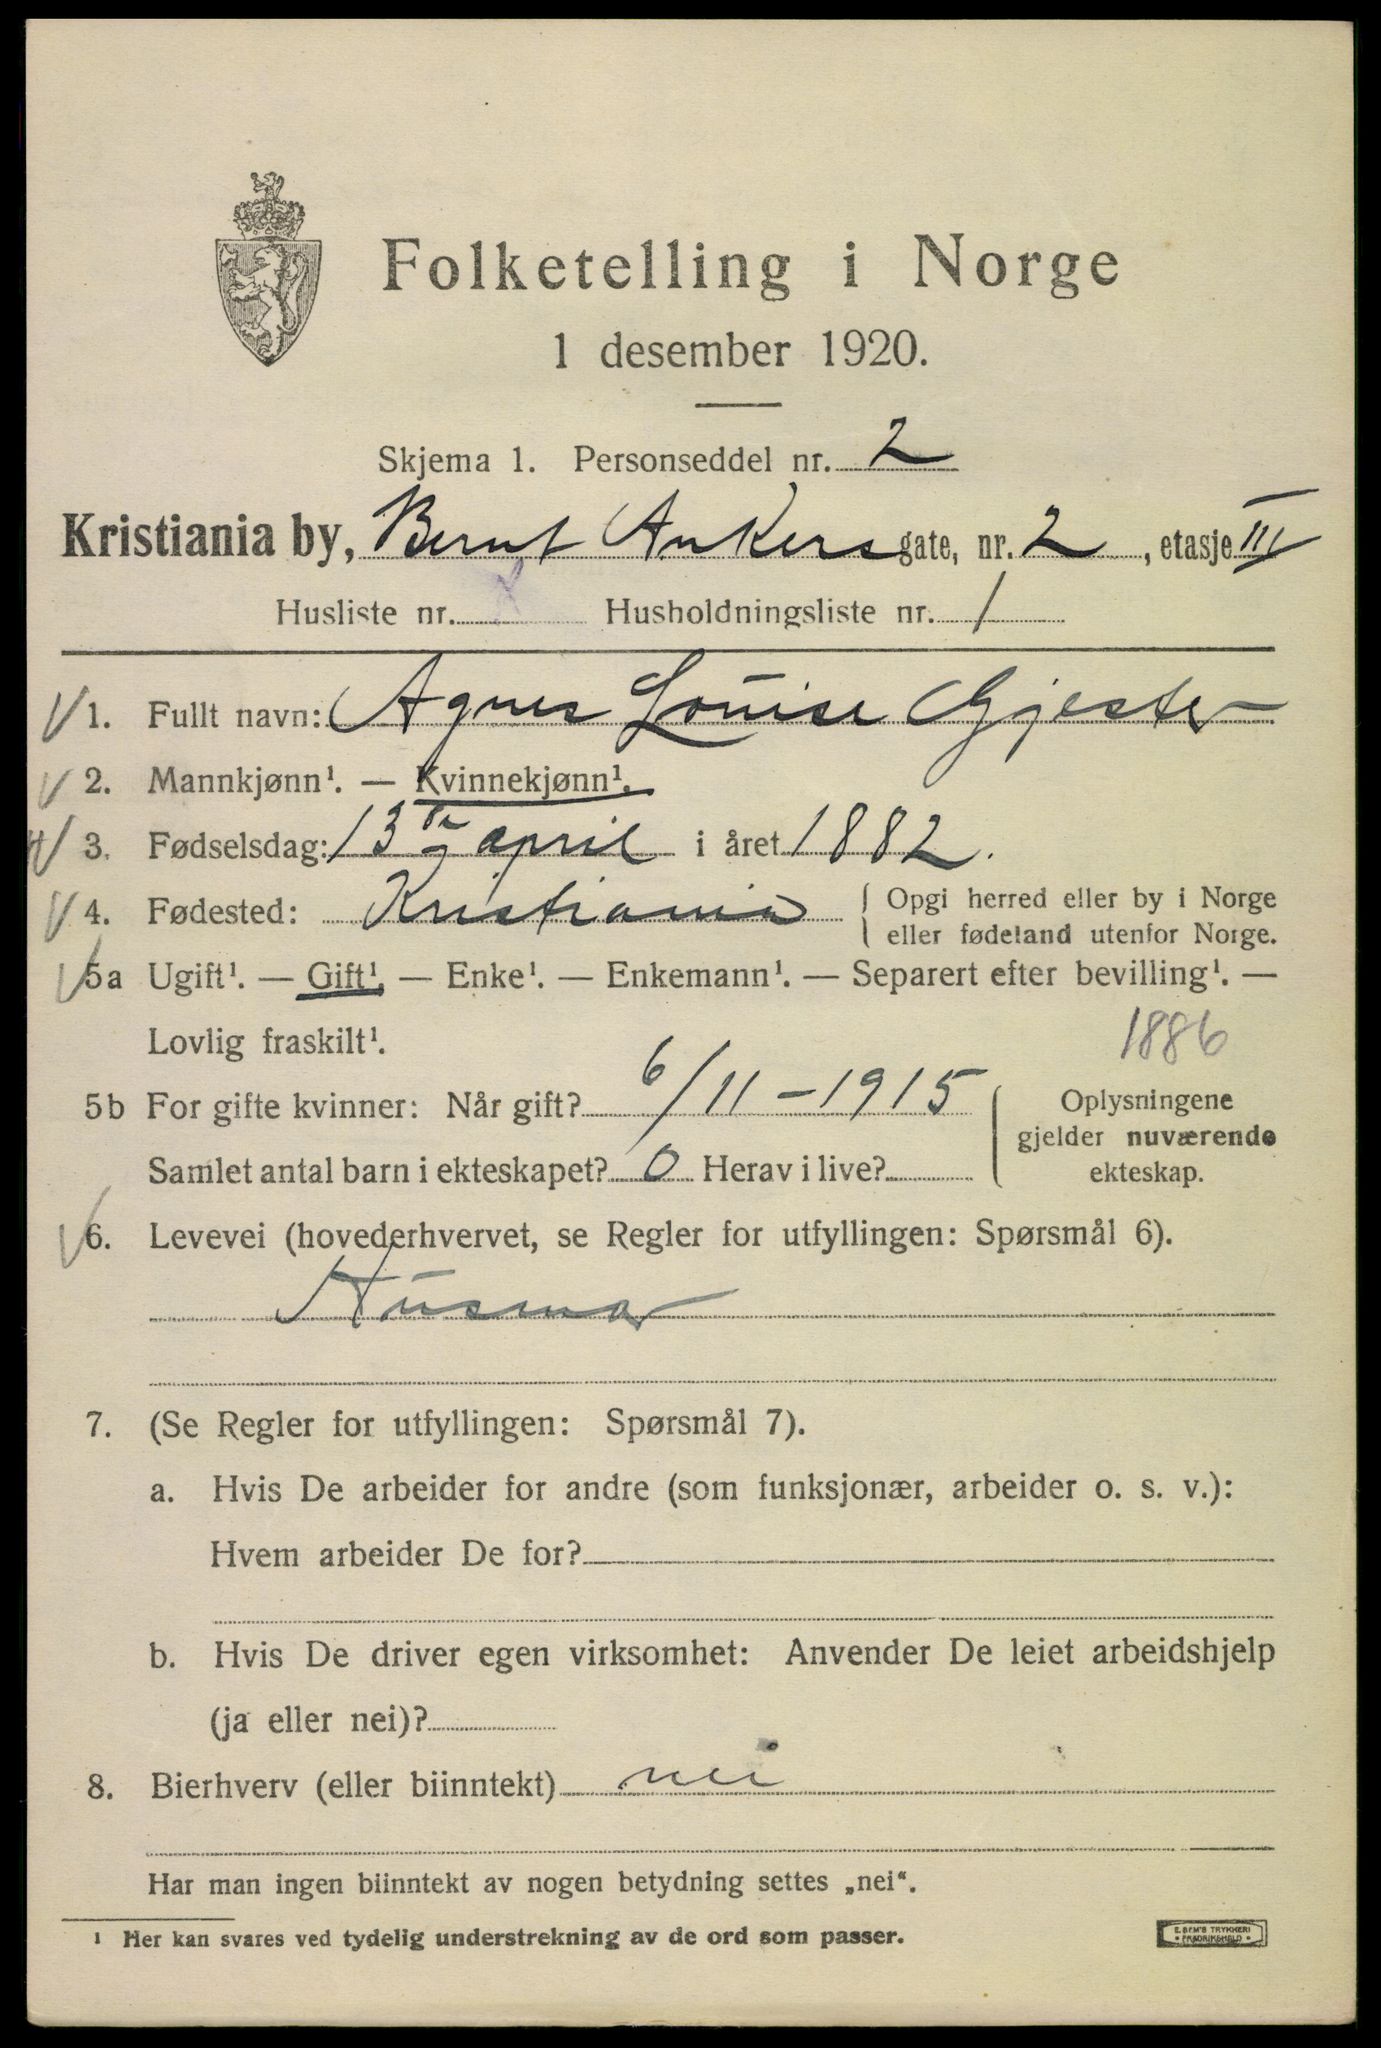 Folketelling i Norge
1 desember 1920.
Skjema 1. Personseddel nr. 2
Kristiania by, Bernt Ankers gate, nr. 2, etasje III
Husliste nr. Husholdningsliste nr. 1
1. Fullt navn: Agnes Louise Gjester
2. Mannkjønn¹. — Kvinnekjønn¹.
3. Fødselsdag: 13de april i året 1882.
4. Fødested: Kristiania { Opgi herred eller by i Norge
eller fødeland utenfor Norge.
5a Ugift¹. — Gift¹. — Enke¹. — Enkemann¹. — Separert efter bevilling¹. —
Lovlig fraskilt¹. 1886
5b For gifte kvinner: Når gift? 6/11-1915
Samlet antal barn i ekteskapet? 0 Herav i live?
Oplysningene
gjelder nuværende
ekteskap.
6. Levevei (hovederhvervet, se Regler for utfyllingen: Spørsmål 6).
Husmor
7. (Se Regler for utfyllingen: Spørsmål 7).
a. Hvis De arbeider for andre (som funksjonær, arbeider o. s. v.):
Hvem arbeider De for?
b. Hvis De driver egen virksomhet: Anvender De leiet arbeidshjelp
(ja eller nei)?
8. Bierhverv (eller biinntekt) nei
Har man ingen biinntekt av nogen betydning settes „nei“.
¹ Her kan svares ved tydelig understrekning av de ord som passer.
E. SEM'S TRYKKERI
FREDRIKSHALD